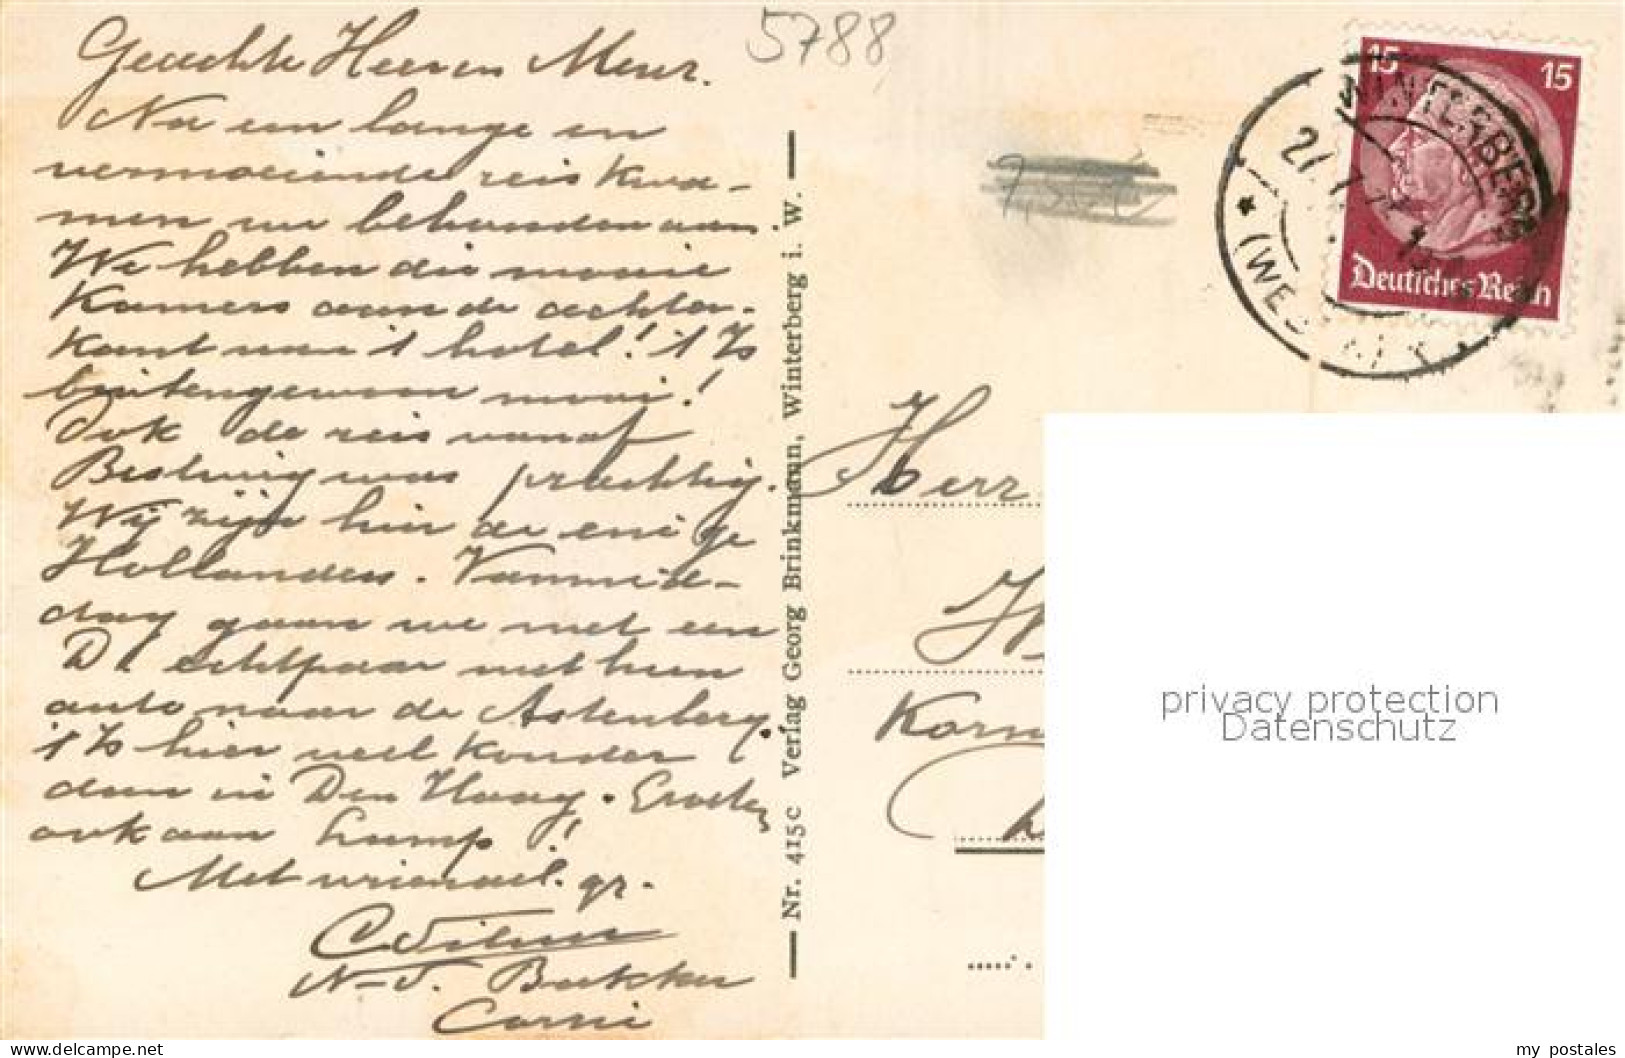 5788
Geachte Heer en Mevr.
Na een lange en
vermoeiende reis kwa-
men we behouden aan.
We hebben die mooie
Kamers aan de achter-
kant van 't hotel! 't Is
buitengewoon mooi!
Ook de reis vanaf
Bestwig was prachtig.
Wij zijn hier de enige
Hollanders. Vanmid-
dag gaan we met een
D. echtpaar met hun
auto naar de Astenberg.
't Is hier veel kouder
dan in Den Haag. Groeten
ook aan
Met vriendel. gr.
Bakker
Corrie
Nr. 415c Verlag Georg Brinkmann, Winterberg i. W.
15 15
Deutsches Reich
WINTERBERG
(WES
Herr
Korn
privacy protection
Datenschutz
my postales
www.delcampe.net